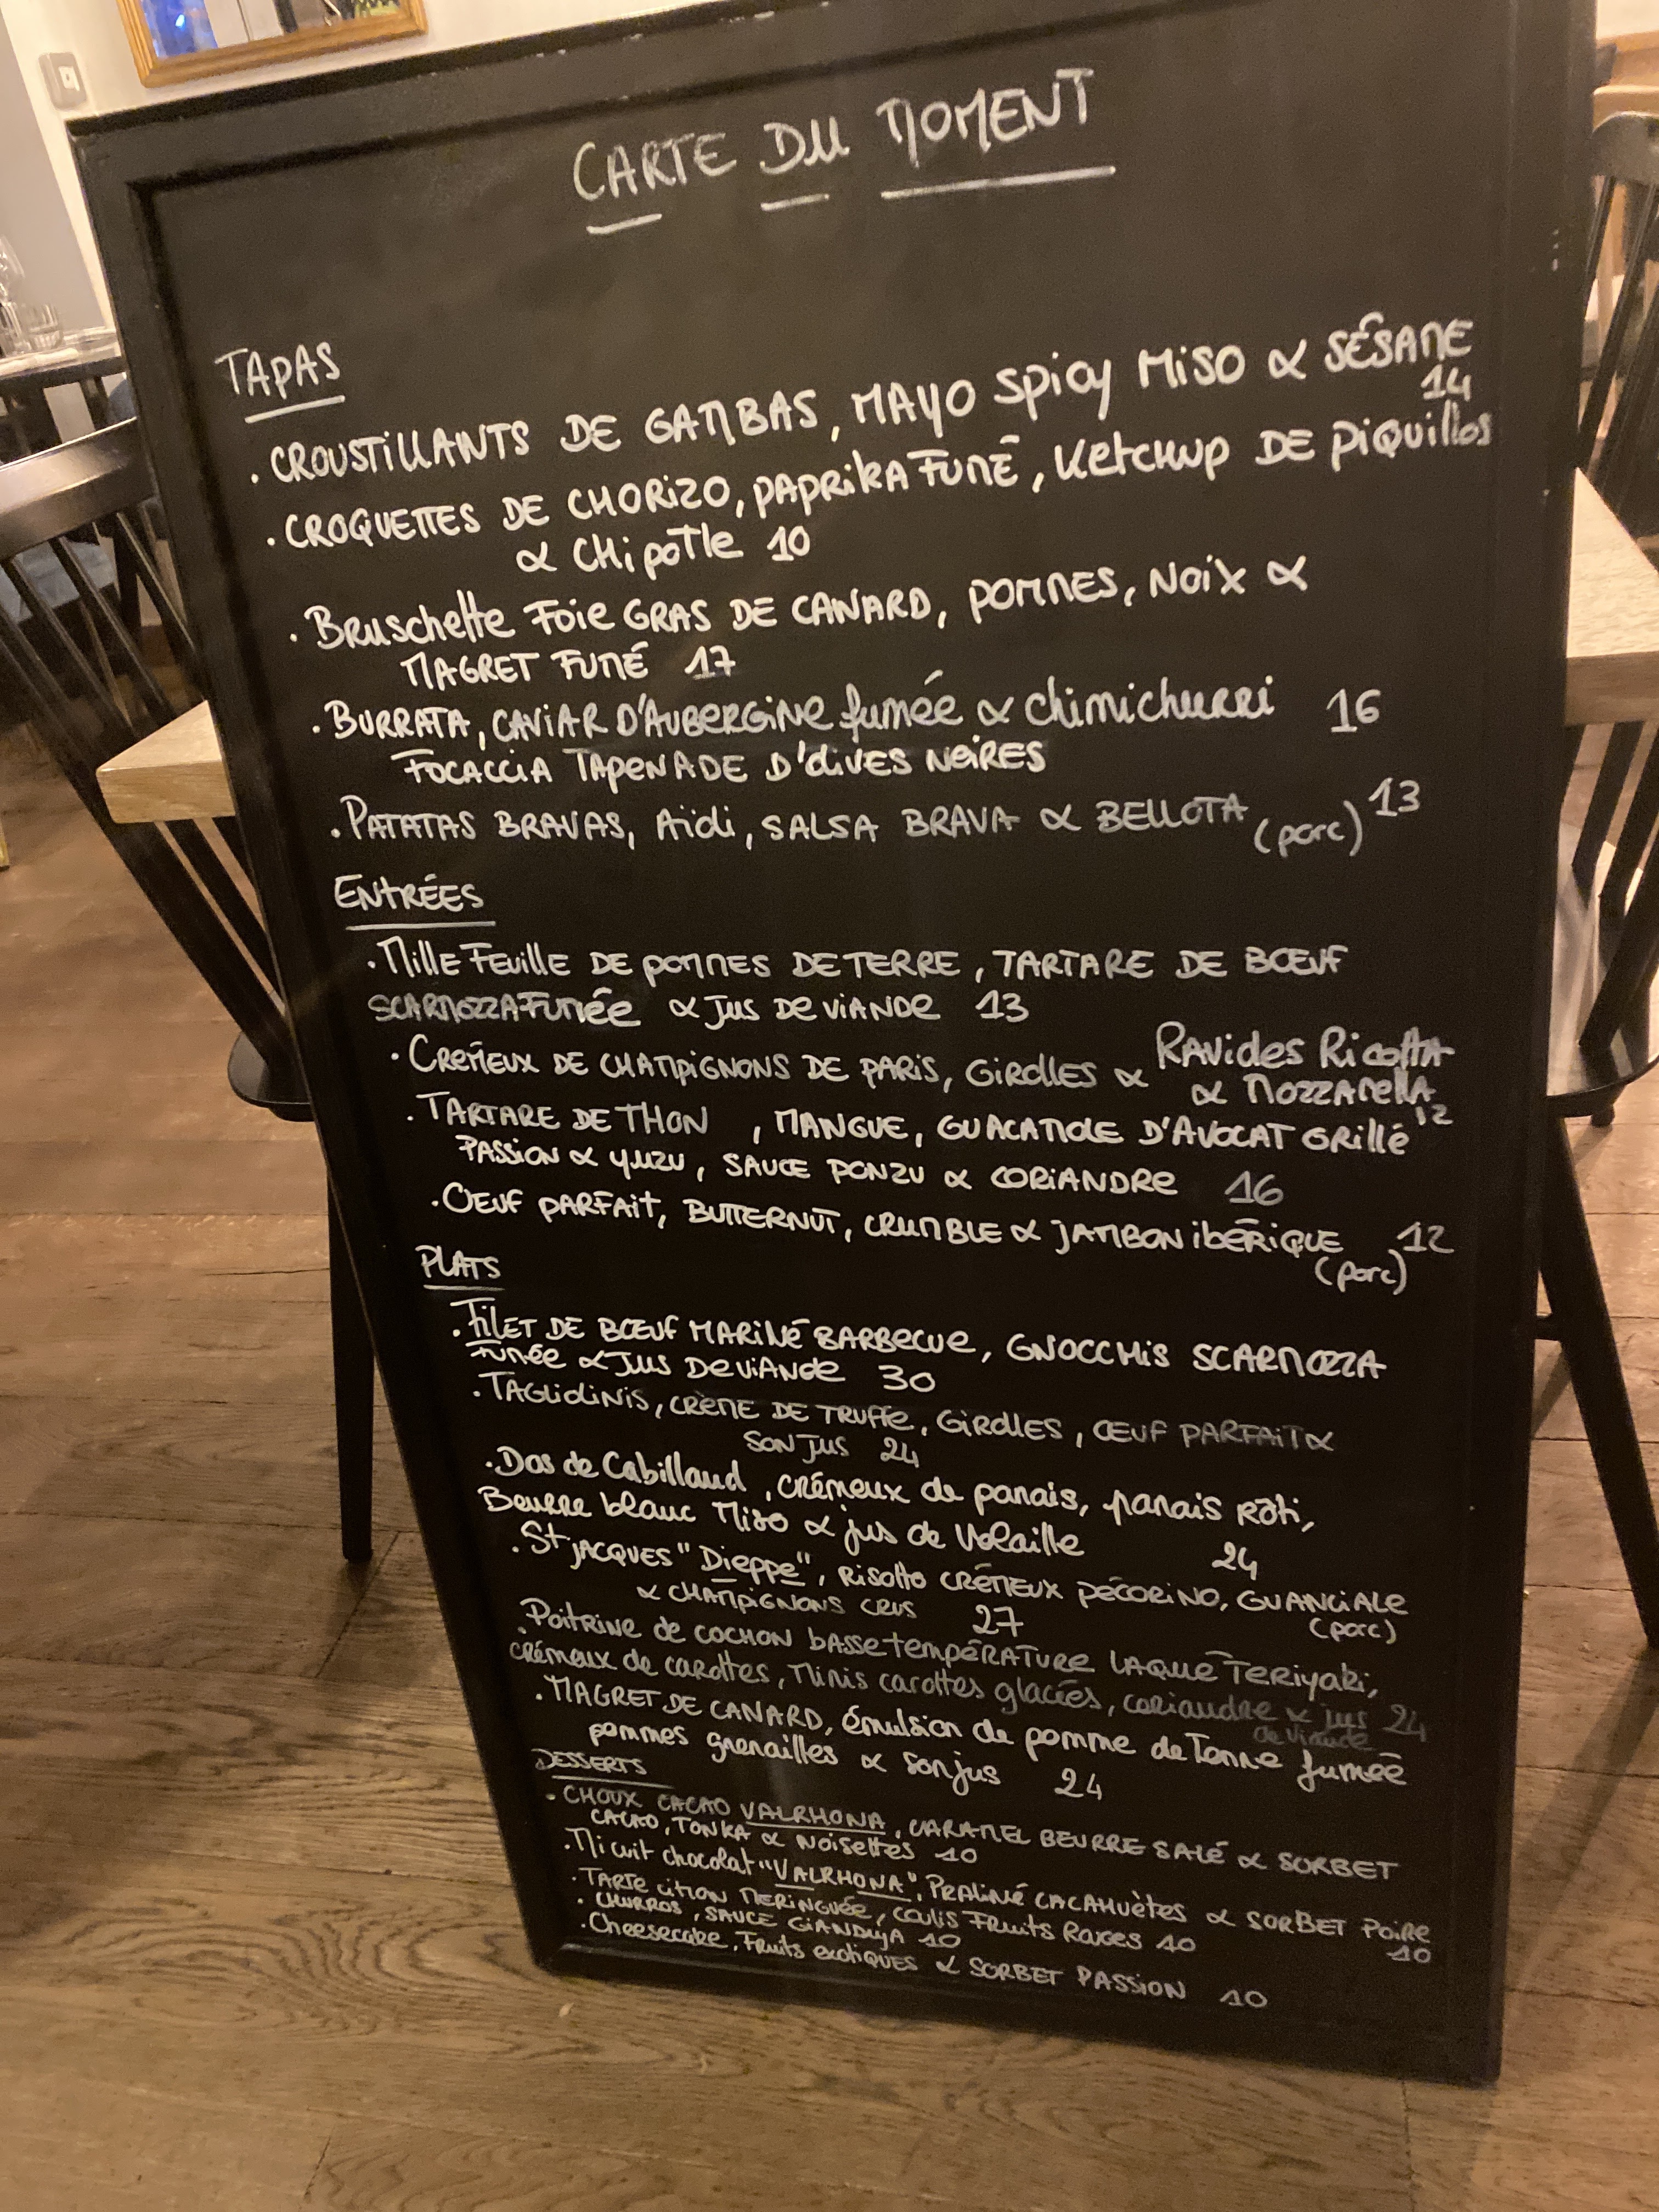 CARTE DU MOMENT
TAPAS
. CROUSTILLANTS DE GAMBAS, MAYO SPICY MISO & SÉSAME
14
. CROQUETTES DE CHORIZO, PAPRIKA FUMÉ, KETCHUP DE PIQUILLOS
& CHIPOTLE 10
. BRUSCHETTE FOIE GRAS DE CANARD, POMMES, NOIX &
MAGRET FUMÉ 17
. BURRATA, CAVIAR D'AUBERGINE fumée & chimichurri 16
FOCACCIA TAPENADE D'OLIVES NOIRES
. PATATAS BRAVAS, Aïoli, SALSA BRAVA & BELLOTA (porc) 13
ENTRÉES
. MILLE FEUILLE DE POMMES DE TERRE, TARTARE DE BŒUF
SCARMOZZA FUMÉE & JUS DE VIANDE 13
. CREMEUX DE CHAMPIGNONS DE PARIS, GIROLLES & RAVIOLES RICOTTA
& MOZZARELLA
12
. TARTARE DE THON , MANGUE, GUACAMOLE D'AVOCAT GRILLÉ
PASSION & YUZU, SAUCE PONZU & CORIANDRE 16
. OEUF PARFAIT, BUTTERNUT, CRUMBLE & JAMBON IBÉRIQUE 12
(porc)
PLATS
. FILET DE BŒUF MARINÉ BARBECUE, GNOCCHIS SCARMOZZA
FUMÉE & JUS DE VIANDE 30
. TAGLIOLINIS, CRÈME DE TRUFFE, GIROLLES, ŒUF PARFAIT &
SON JUS 24
. Dos de Cabillaud, crémeux de panais, panais rôti,
Beurre blanc Miso & jus de Volaille 24
. St JACQUES "Dieppe", Risotto CRÉMEUX PECORINO, GUANCIALE
& CHAMPIGNONS CRUS 27 (porc)
. Poitrine de COCHON basse température LAQUÉ TERIYAKI,
crémeux de carottes, Minis carottes glacées, coriandre & jus 24
de Viande
. MAGRET DE CANARD, émulsion de pomme de Terre fumée
pommes grenailles & son jus 24
DESSERTS
. CHOUX CACAO VALRHONA, CARAMEL BEURRE SALÉ & SORBET
CACAO, TONKA & NOISETTES 10
. Mi cuit chocolat "VALRHONA", PRALINÉ CACAHUÈTES & SORBET POIRE
10
. TARTE CITRON MERINGUÉE, COULIS FRUITS ROUGES 10
. CHURROS, SAUCE GIANDUJA 10
. Cheesecake, Fruits exotiques & SORBET PASSION 10